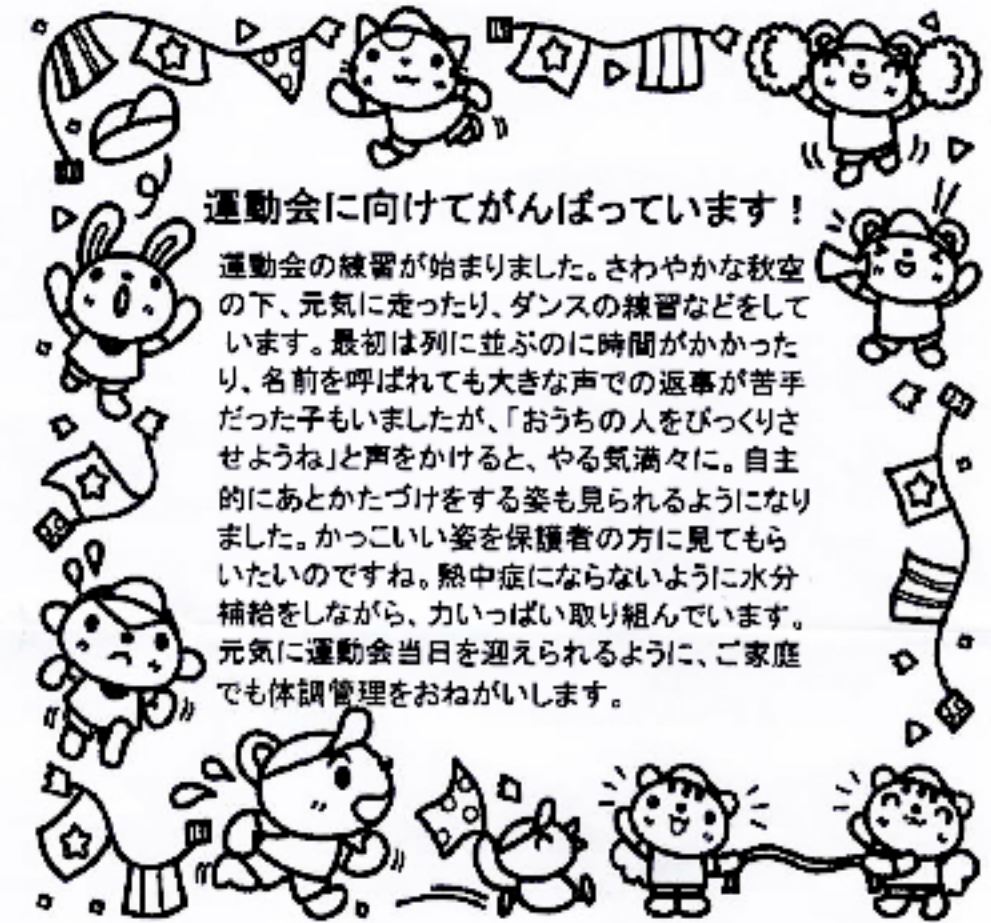 運動会に向けてがんばっています！
運動会の練習が始まりました。さわやかな秋空
の下、元気に走ったり、ダンスの練習などをして
います。最初は列に並ぶのに時間がかかった
り、名前を呼ばれても大きな声での返事が苦手
だった子もいましたが、「おうちの人をびっくりさ
せようね」と声をかけると、やる気満々に。自主
的にあとかたづけをする姿も見られるようになり
ました。かっこいい姿を保護者の方に見てもら
いたいのですね。熱中症にならないように水分
補給をしながら、力いっぱい取り組んでいます。
元気に運動会当日を迎えられるように、ご家庭
でも体調管理をおねがいします。